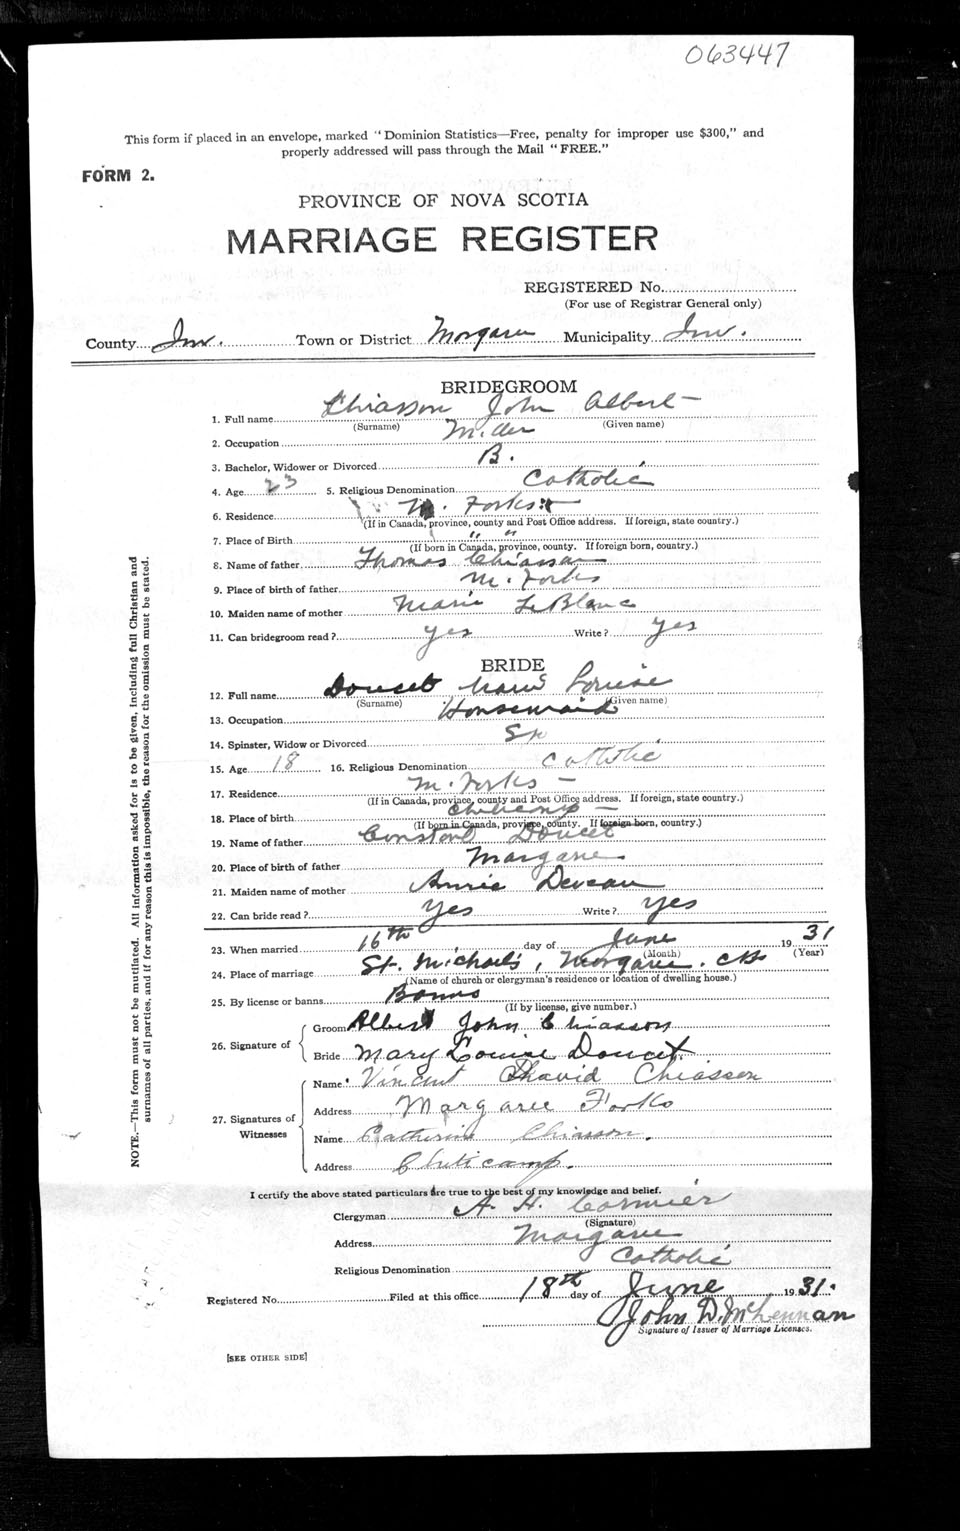 063447
This form if placed in an envelope, marked "Dominion Statistics—Free, penalty for improper use $300," and
properly addressed will pass through the Mail "FREE."
FORM 2.
PROVINCE OF NOVA SCOTIA
MARRIAGE REGISTER
REGISTERED No.
(For use of Registrar General only)
County Inv. Town or District Margaree Municipality Inv.
BRIDEGROOM
1. Full name Chiasson John Albert
(Surname) (Given name)
2. Occupation
3. Bachelor, Widower or Divorced B.
4. Age 23 5. Religious Denomination Catholic
6. Residence M. Forks
(If in Canada, province, county and Post Office address. If foreign, state country.)
7. Place of Birth " "
(If born in Canada, province, county. If foreign born, country.)
8. Name of father Thomas Chiasson
9. Place of birth of father M. Forks
10. Maiden name of mother Marie LeBlanc
11. Can bridegroom read? yes Write? yes
BRIDE
12. Full name Doucet Marie Louise
(Surname) (Given name)
13. Occupation Housemaid
14. Spinster, Widow or Divorced Sp
15. Age 18 16. Religious Denomination Catholic
17. Residence M. Forks —
(If in Canada, province, county and Post Office address. If foreign, state country.)
18. Place of birth Cheticamp —
(If born in Canada, province, county. If foreign born, country.)
19. Name of father Constant Doucet
20. Place of birth of father Margaree
21. Maiden name of mother Annie Deveau
22. Can bride read? yes Write? yes
23. When married 16th day of June 1931
(Month) (Year)
24. Place of marriage St. Michael's, Margaree. CB
(Name of church or clergyman's residence or location of dwelling house.)
25. By license or banns Banns
(If by license, give number.)
26. Signature of
Groom Albert John Chiasson
Bride Mary Louise Doucet
27. Signatures of Witnesses
Name Vincent David Chiasson
Address Margaree Forks
Name Catherine Chiasson.
Address Cheticamp.
I certify the above stated particulars are true to the best of my knowledge and belief.
Clergyman A. H. Cormier
(Signature)
Address Margaree
Religious Denomination Catholic
Registered No. Filed at this office 18th day of June 1931.
John D. McLennan
Signature of Issuer of Marriage Licenses.
[SEE OTHER SIDE]
NOTE.—This form must not be mutilated. All information asked for is to be given, including full Christian and
surnames of all parties, and if for any reason this is impossible, the reason for the omission must be stated.